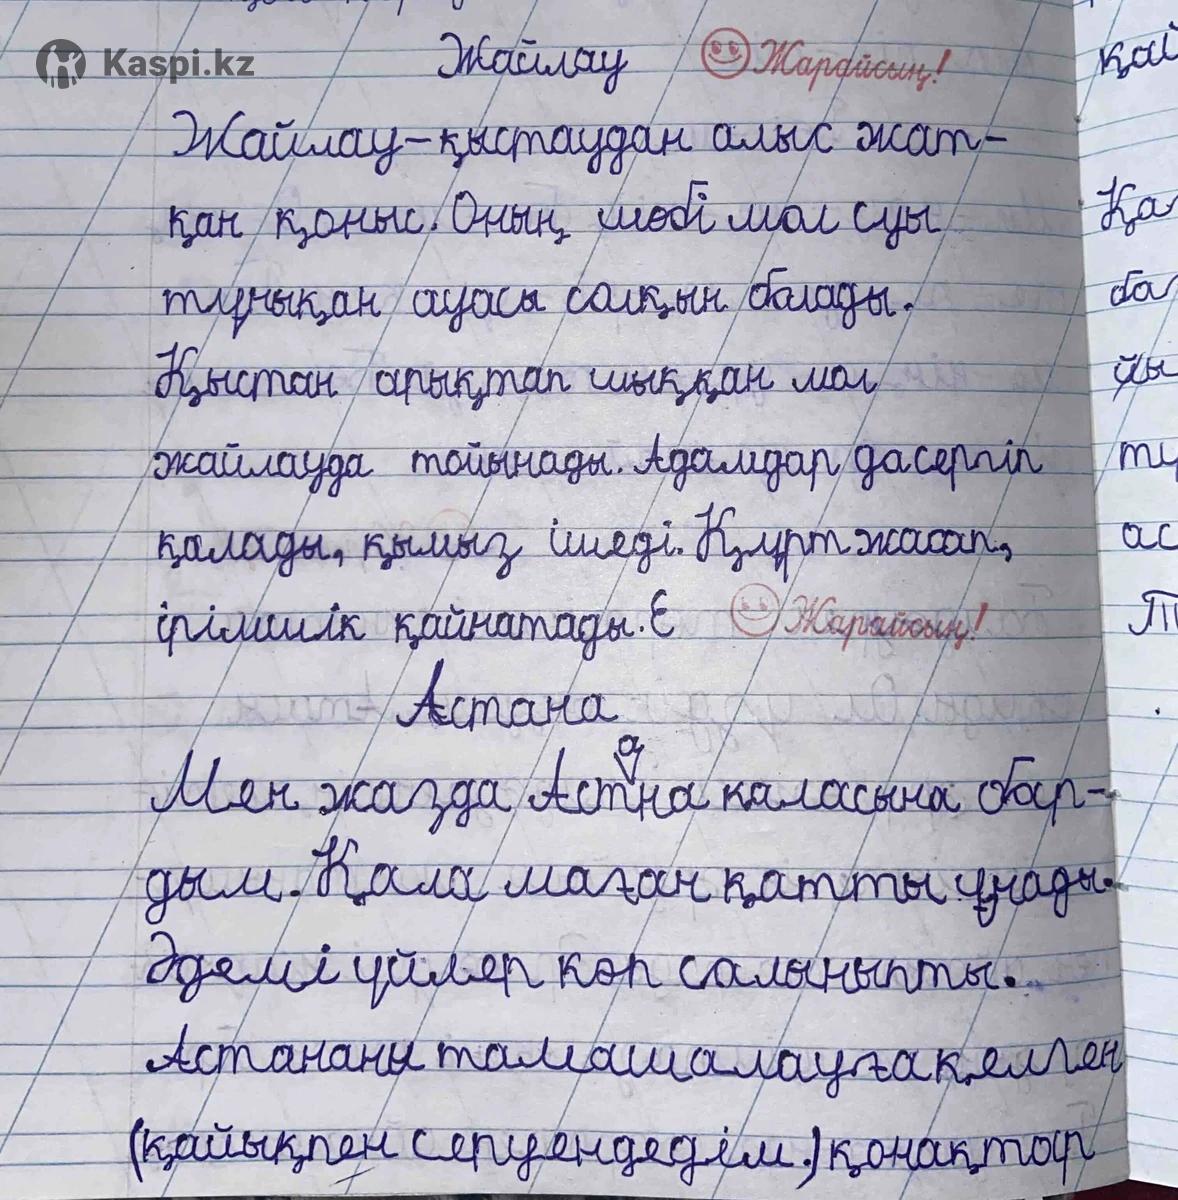 Kaspi.kz
Жайлау Жарайсың!
Жайлау-қыстаудан алыс жат-
қан қоныс. Оның шөбі мол суы
тұнықан ауасы салқын болады.
Қыстан арықтап шыққан мал
жайлауда тойынады. Адамдар да сергіп
қалады, қымыз ішеді. Құрт жасап,
ірімшік қайнатады. Є Жарайсың!
Астана
а
Мен жазда Астна қаласына бар-
дым. Қала маған қатты ұнады.
Әдемі үйлер көп салыныпты.
Астананы тамашалауға келген
(қайықпен серуендедім.) қонақтар
қай
Қа
ба
йы
тұ
ас
Т